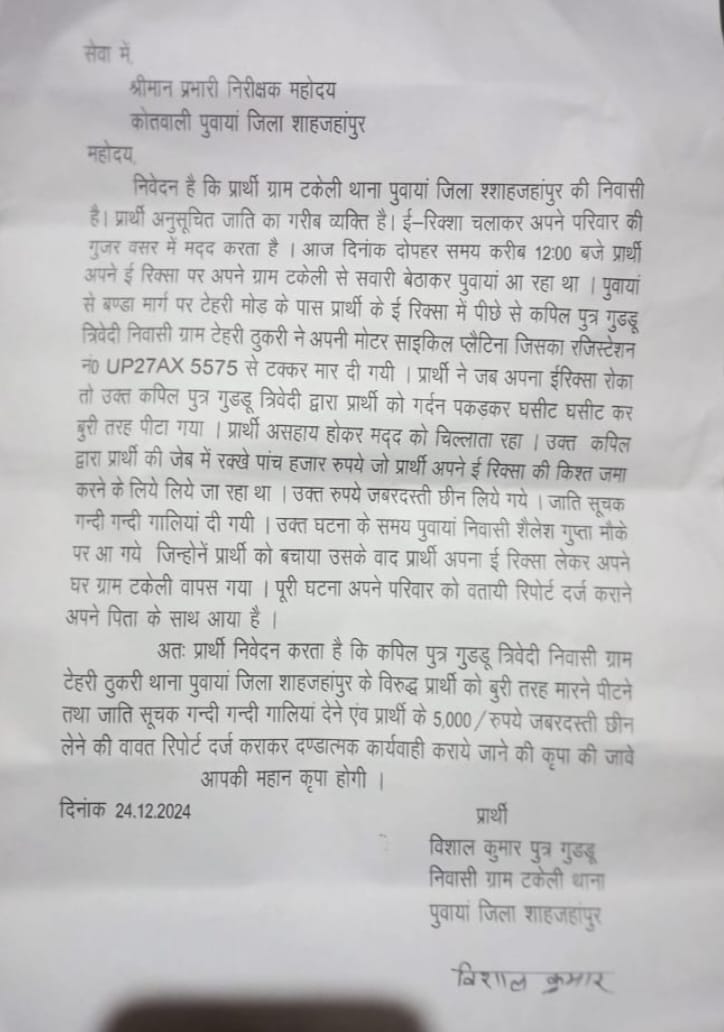 सेवा में,
श्रीमान प्रभारी निरीक्षक महोदय
कोतवाली पुवायां जिला शाहजहांपुर
महोदय,
निवेदन है कि प्रार्थी ग्राम टकेली थाना पुवायां जिला श्शाहजहांपुर की निवासी
है। प्रार्थी अनुसूचित जाति का गरीब व्यक्ति है। ई–रिक्शा चलाकर अपने परिवार की
गुजर वसर में मद्द करता है । आज दिनांक दोपहर समय करीब 12:00 बजे प्रार्थी
अपने ई रिक्सा पर अपने ग्राम टकेली से सवारी बेठाकर पुवायां आ रहा था । पुवायां
से बण्डा मार्ग पर टेहरी मोड़ के पास प्रार्थी के ई रिक्सा में पीछे से कपिल पुत्र गुडडू
त्रिवेदी निवासी ग्राम टेहरी ठुकरी ने अपनी मोटर साइकिल प्लैटिना जिसका रजिस्टेशन
नं0 UP27AX 5575 से टक्कर मार दी गयी । प्रार्थी ने जब अपना ईरिक्सा रोका
तो उक्त कपिल पुत्र गुडडू त्रिवेदी द्वारा प्रार्थी को गर्दन पकड़कर घसीट घसीट कर
बुरी तरह पीटा गया । प्रार्थी असहाय होकर मद्द को चिल्लाता रहा । उक्त कपिल
द्वारा प्रार्थी की जेब में रक्खे पांच हजार रुपये जो प्रार्थी अपने ई रिक्सा की किश्त जमा
करने के लिये लिये जा रहा था । उक्त रुपये जबरदस्ती छीन लिये गये । जाति सूचक
गन्दी गन्दी गालियां दी गयी । उक्त घटना के समय पुवायां निवासी शैलेश गुप्ता मौके
पर आ गये जिन्होनें प्रार्थी को बचाया उसके वाद प्रार्थी अपना ई रिक्सा लेकर अपने
घर ग्राम टकेली वापस गया । पूरी घटना अपने परिवार को वतायी रिपोर्ट दर्ज कराने
अपने पिता के साथ आया है ।
अतः प्रार्थी निवेदन करता है कि कपिल पुत्र गुडडू त्रिवेदी निवासी ग्राम
टेहरी ठुकरी थाना पुवायां जिला शाहजहांपुर के विरुद्ध प्रार्थी को बुरी तरह मारने पीटने
तथा जाति सूचक गन्दी गन्दी गालियां देने एंव प्रार्थी के 5,000 / रुपये जबरदस्ती छीन
लेने की वावत रिपोर्ट दर्ज कराकर दण्डात्मक कार्यवाही कराये जाने की कृपा की जावे
आपकी महान कृपा होगी ।
दिनांक 24.12.2024
प्रार्थी
विशाल कुमार पुत्र गुडडू
निवासी ग्राम टकेली थाना
पुवायां जिला शाहजहांपुर
विशाल कुमार